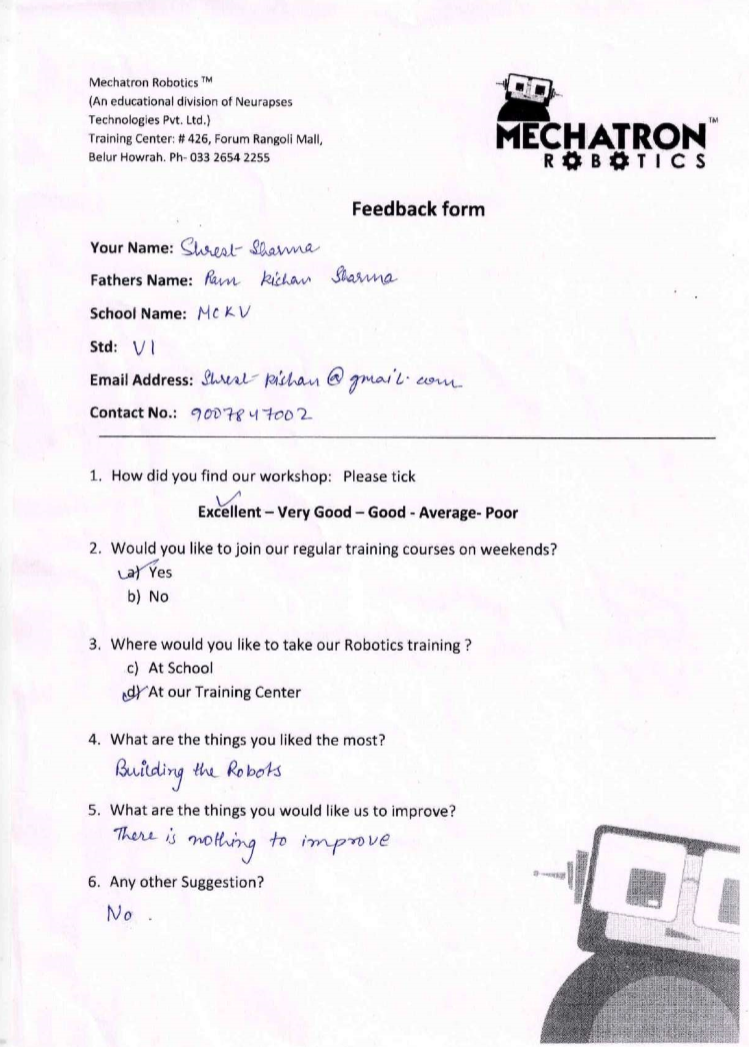 Mechatron Robotics ™
(An educational division of Neurapses
Technologies Pvt. Ltd.)
Training Center: # 426, Forum Rangoli Mall,
Belur Howrah. Ph- 033 2654 2255
MECHATRON™
ROBOTICS
Feedback form
Your Name: Shrest Sharma
Fathers Name: Ram Kichan Sharma
School Name: MCKV
Std: VI
Email Address: Shrest kishan @ gmail. com
Contact No.: 9007847002
1. How did you find our workshop: Please tick
Excellent – Very Good – Good - Average- Poor
2. Would you like to join our regular training courses on weekends?
a) Yes
b) No
3. Where would you like to take our Robotics training ?
c) At School
d) At our Training Center
4. What are the things you liked the most?
Building the Robots
5. What are the things you would like us to improve?
There is nothing to improve
6. Any other Suggestion?
No .